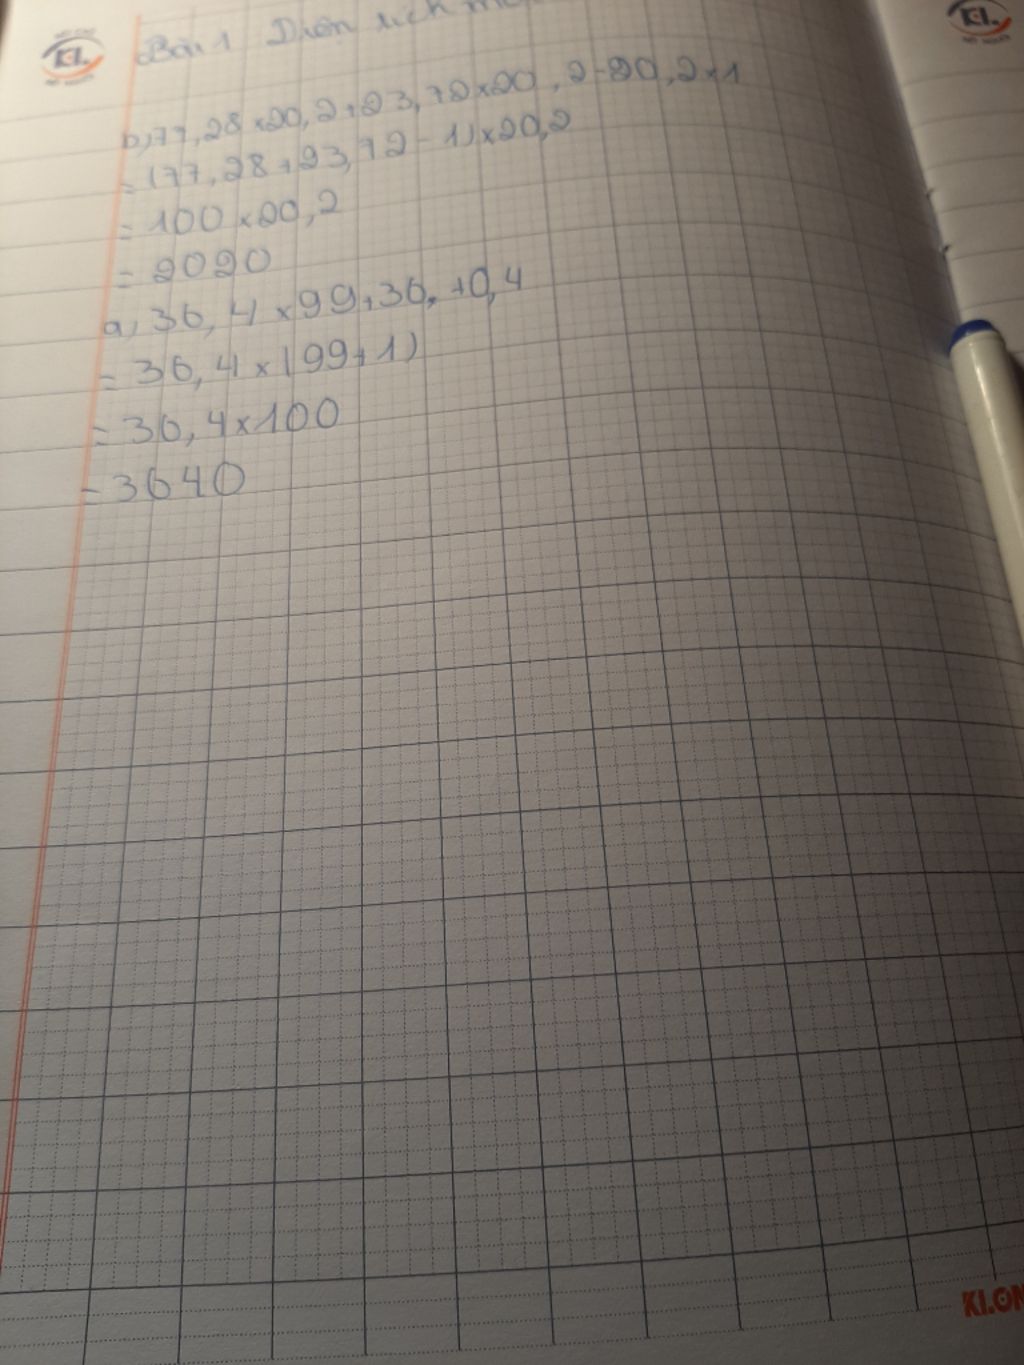 Bài 1 Diện tích
b, 77,28×20,2+23,72×20,2-20,2×1
=(77,28+23,72-1)×20,2
=100×20,2
=2020
a, 36,4×99+36,+0,4
=36,4×(99+1)
=36,4×100
=3640
KL.
KL.
KLON